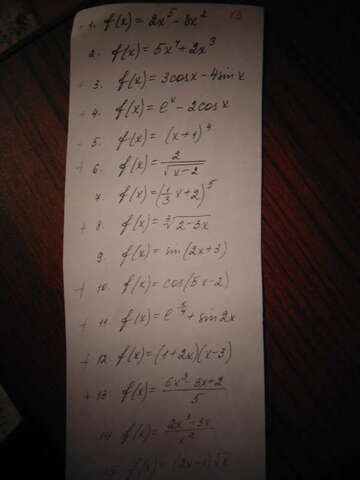 13
- 1. f(x) = 2x⁵ - 8x²
2. f(x) = 5x⁴ + 2x³
+ 3. f(x) = 3cosx - 4sinx
+ 4. f(x) = eˣ - 2cosx
- 5. f(x) = (x+1)⁴
+ 6. f(x) = 2/√(x-2)
7. f(x) = (1/3 x + 2)⁵
+ 8. f(x) = ∛(2-3x)
9. f(x) = sin(2x+3)
+ 10. f(x) = cos(5x-2)
+ 11. f(x) = e^(x/4) + sin2x
+ 12. f(x) = (1+2x)(x-3)
+ 13. f(x) = (6x³ - 3x + 2)/5
14. f(x) = (2x³ - 3x)/x²
15. f(x) =